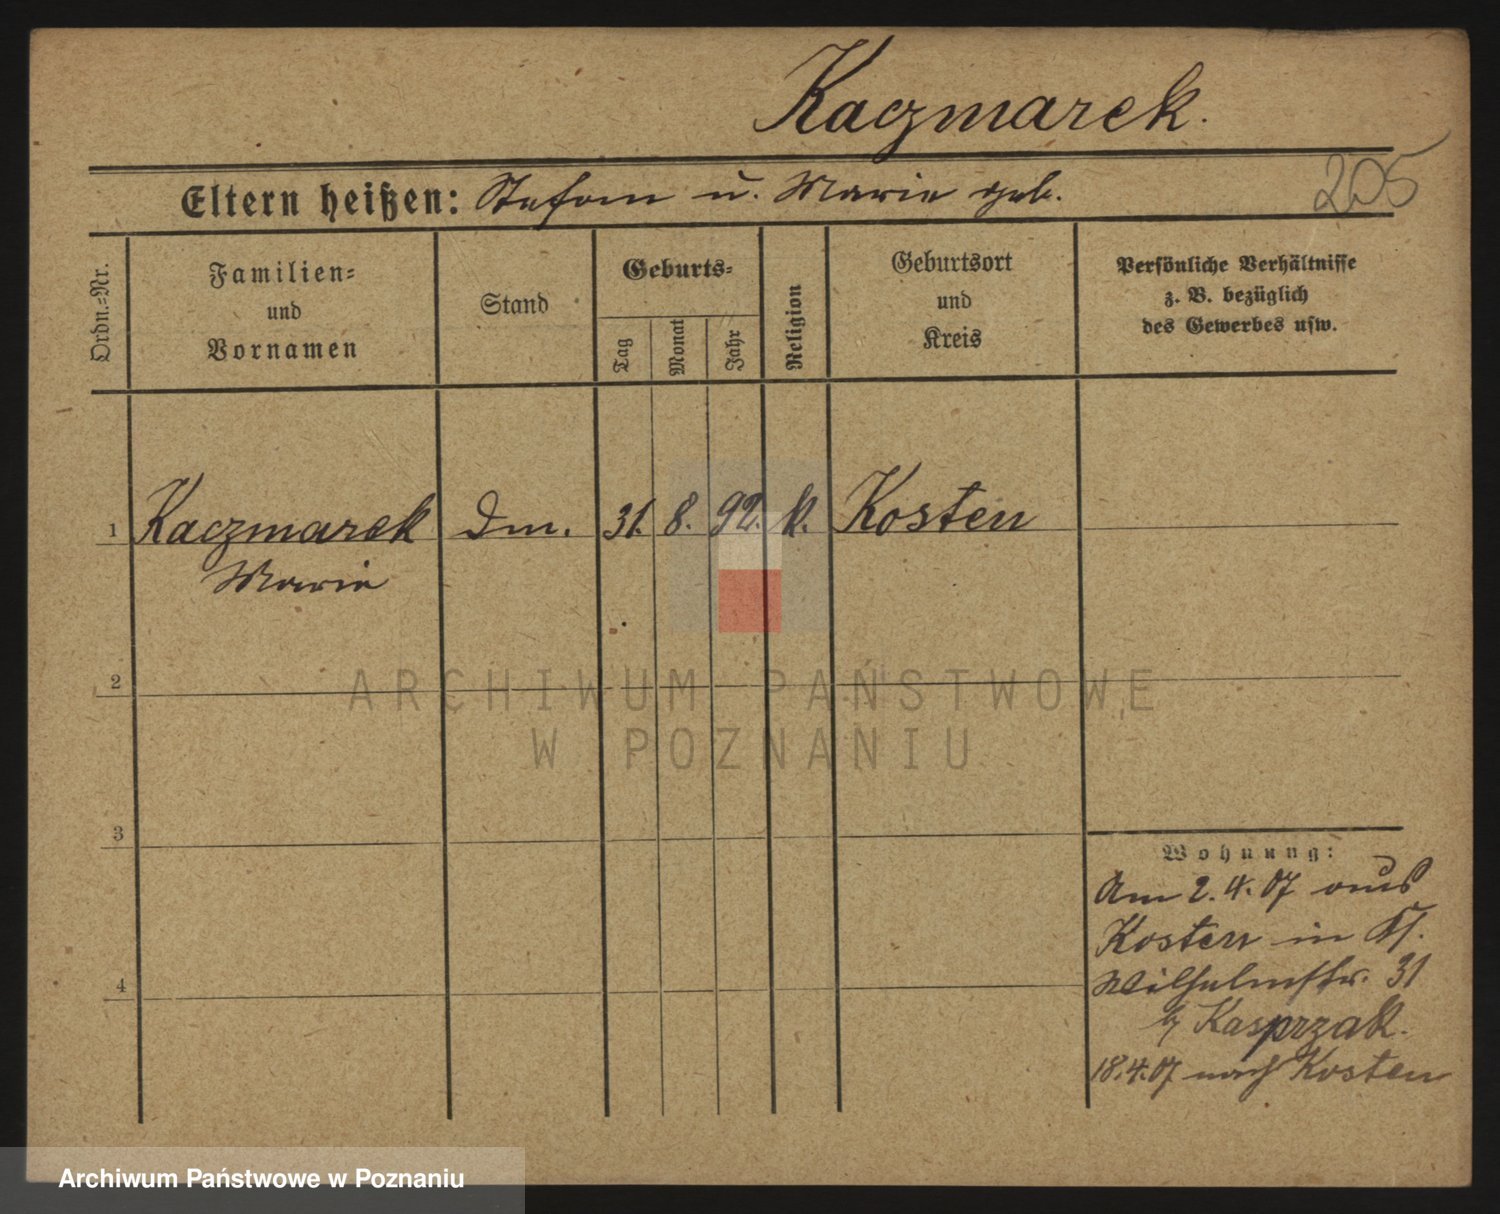 Kaczmarek.
Eltern heißen: Stefan u. Marie geb.
205
Ordn.=Nr.
Familien=
und
Vornamen
Stand
Geburts=
Tag
Monat
Jahr
Religion
Geburtsort
und
Kreis
Persönliche Verhältnisse
z. B. bezüglich
des Gewerbes usw.
1 Kaczmarek 31. 8. 92. k. Kosten
Marie
2
ARCHIWUM PAŃSTWOWE
W POZNANIU
3
4
Wohnung:
Am 2.4.07 aus
Kosten in
Wilhelmstr. 31
b/ Kasprzak.
18.4.07 nach Kosten
Archiwum Państwowe w Poznaniu